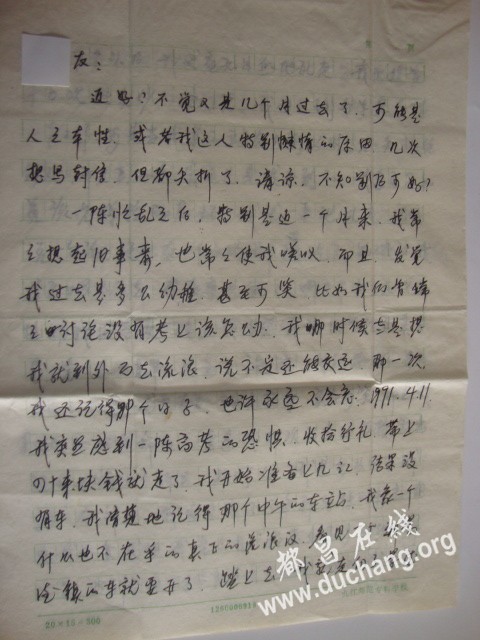 友:
近好?不觉又是几个月过去了,可能是
人之本性,或者我这人特别懒惰的原因,几次
想写封信,但都夭折了,请谅,不知别后可好?
一阵忙乱之后,特别是近一个月来,我常
常想起旧事来,也常常使我嗟叹,而且,发觉
我过去是多么幼稚,甚至可笑,比如我们曾经
讨论没有考上该怎么办,我那时候老是想
我就到外面去流浪,说不定还能变迹,那一次
我还记得那个日子,也许永远不会忘,1991.4.11.
我突然感到一阵高考的恐惧,收拾行礼,带上
四十来块钱就走了,我开始准备上九江,结果没
有车,我清楚地记得那个中午的车站,我象一个
什么也不在乎的真正的流浪汉,看见
镇的车就要开了,踏上去
都昌在线
www.duchang.org
20×15=300